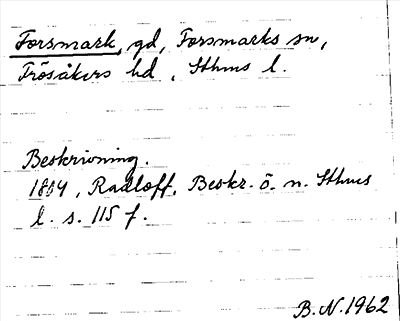 Forsmark, gd, Forsmarks sn,
Frösåkers hd, Sthms l.
Beskrivning.
1804, Radloff. Beskr. ö. n. Sthms
l. s. 115 f.
B.N. 1962